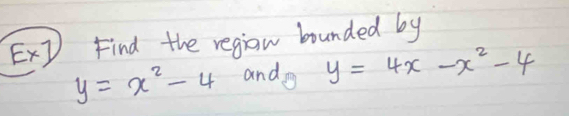 Ex1) Find the region bounded by
y = x² - 4 and y = 4x - x² - 4